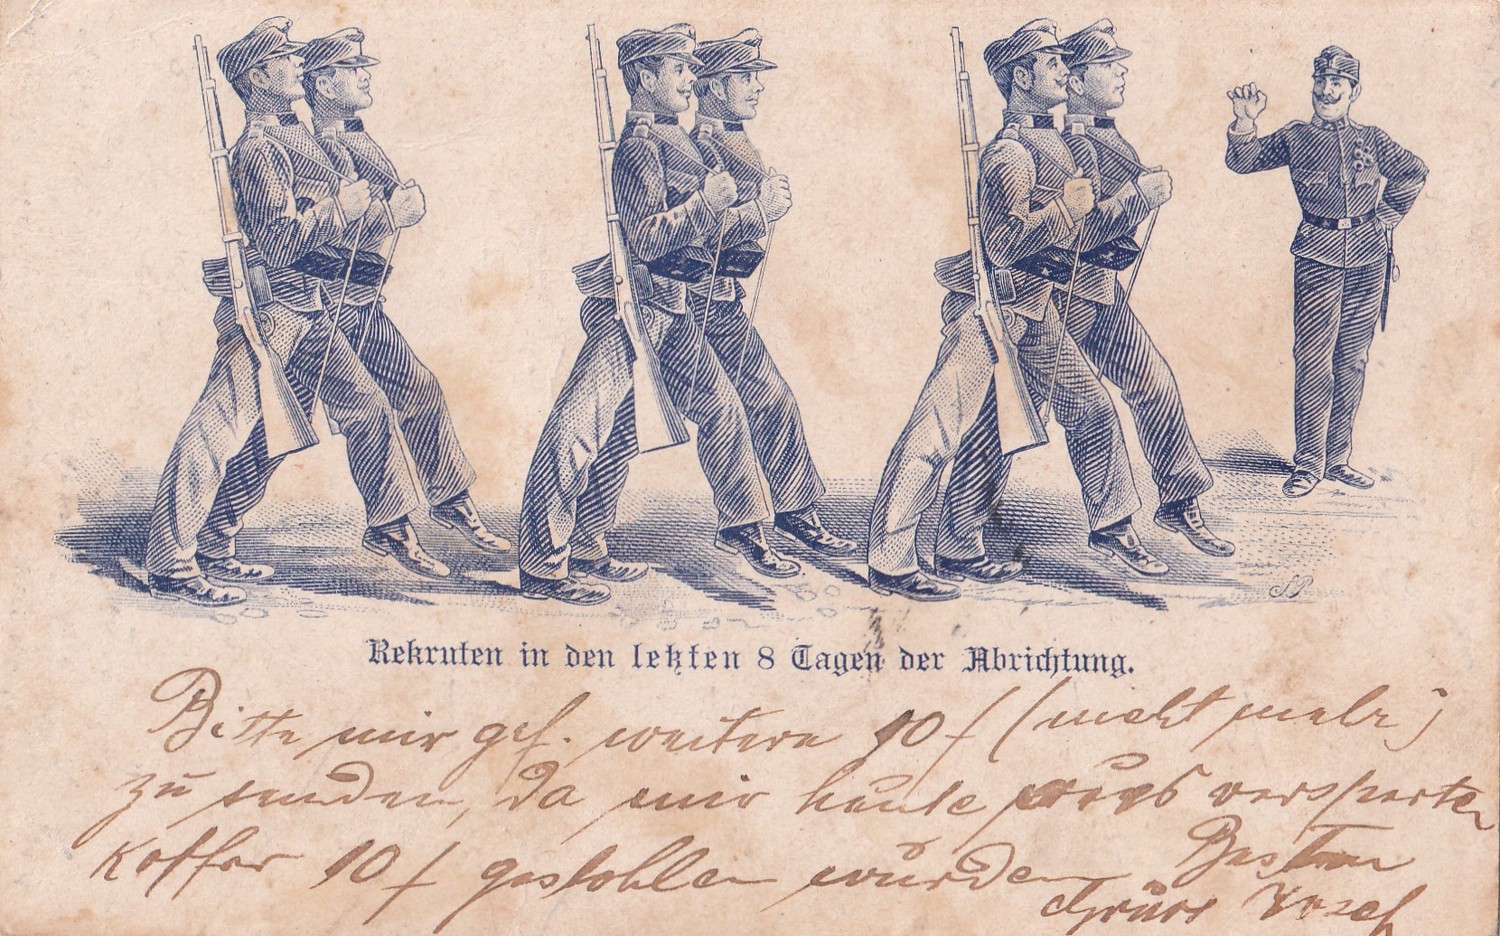 Rekruten in den letzten 8 Tagen der Abrichtung.
Bitte mir gef. weitere 10 f (nicht mehr)
zu senden, da mir heute aus versperrten
Koffer 10 f gestohlen wurden Besten
Gruss Josef